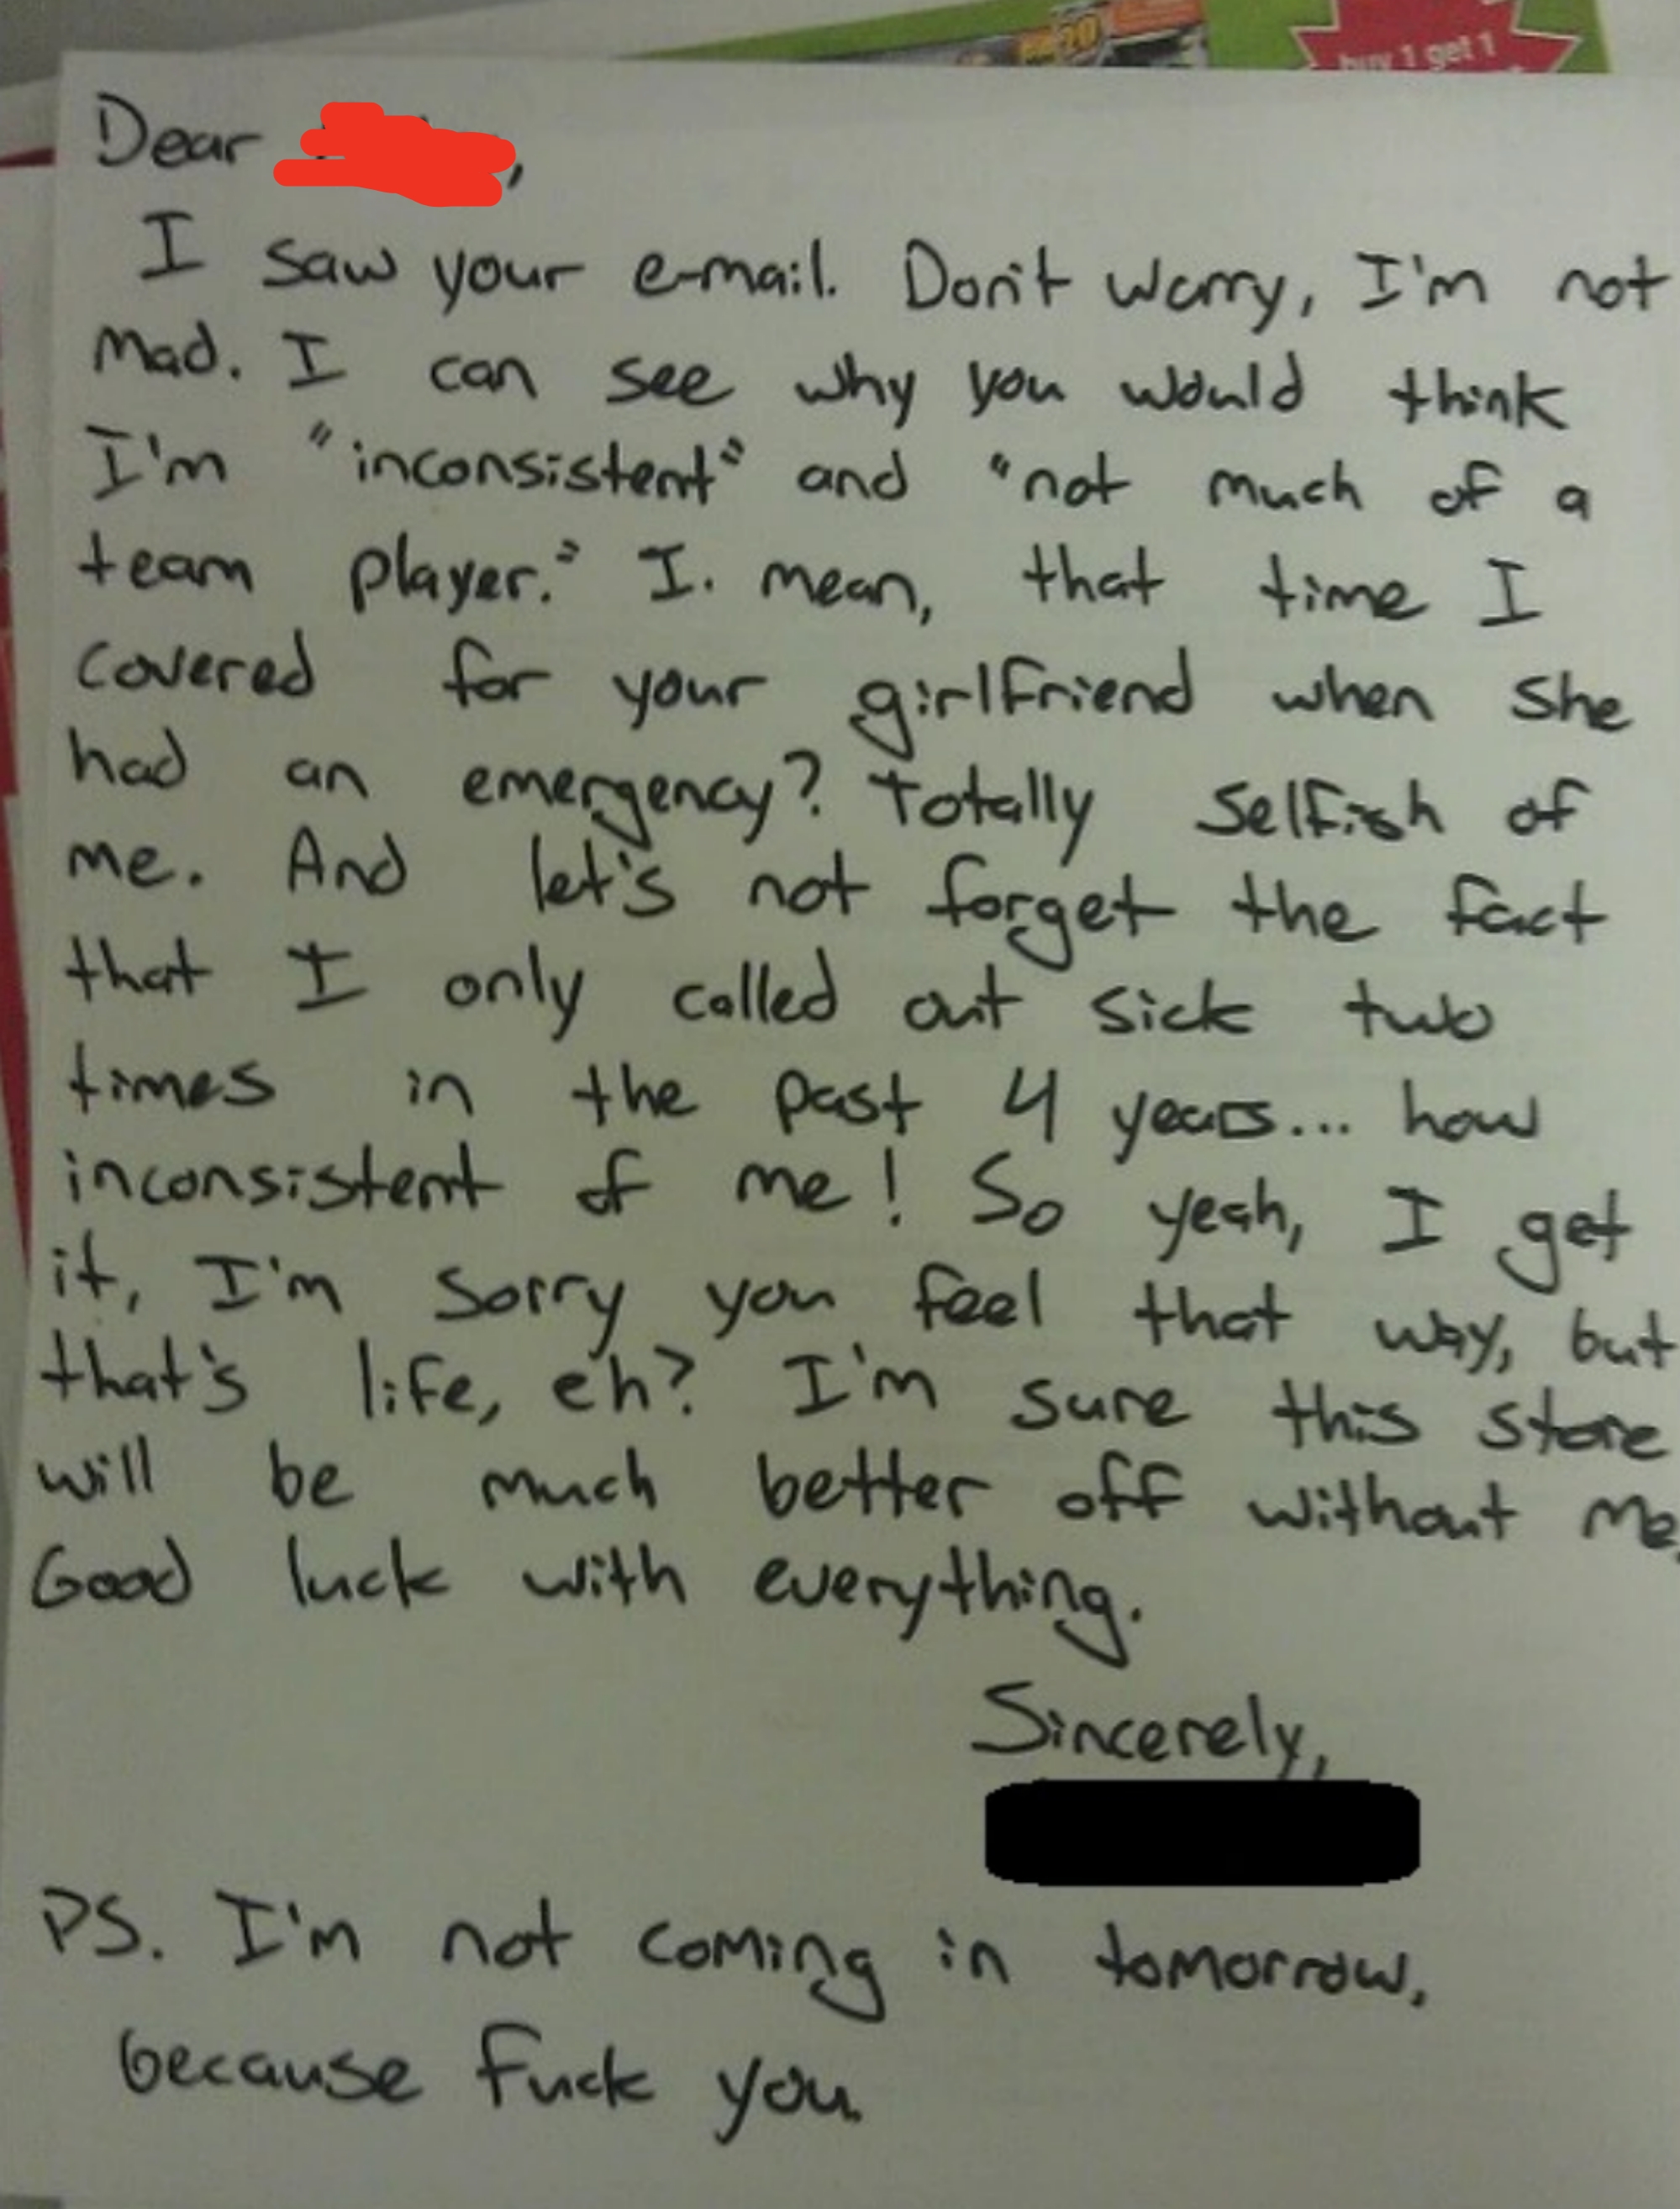 buy 1 get 1
Dear ,
I saw your e-mail. Don't worry, I'm not
mad. I can see why you would think
I'm "inconsistent" and "not much of a
team player." I. mean, that time I
covered for your girlfriend when she
had an emergency? Totally selfish of
me. And let's not forget the fact
that I only called out sick two
times in the past 4 years... how
inconsistent of me! So yeah, I get
it, I'm sorry you feel that way, but
that's life, eh? I'm sure this store
will be much better off without me.
Good luck with everything.
Sincerely,
PS. I'm not coming in tomorrow,
because fuck you.